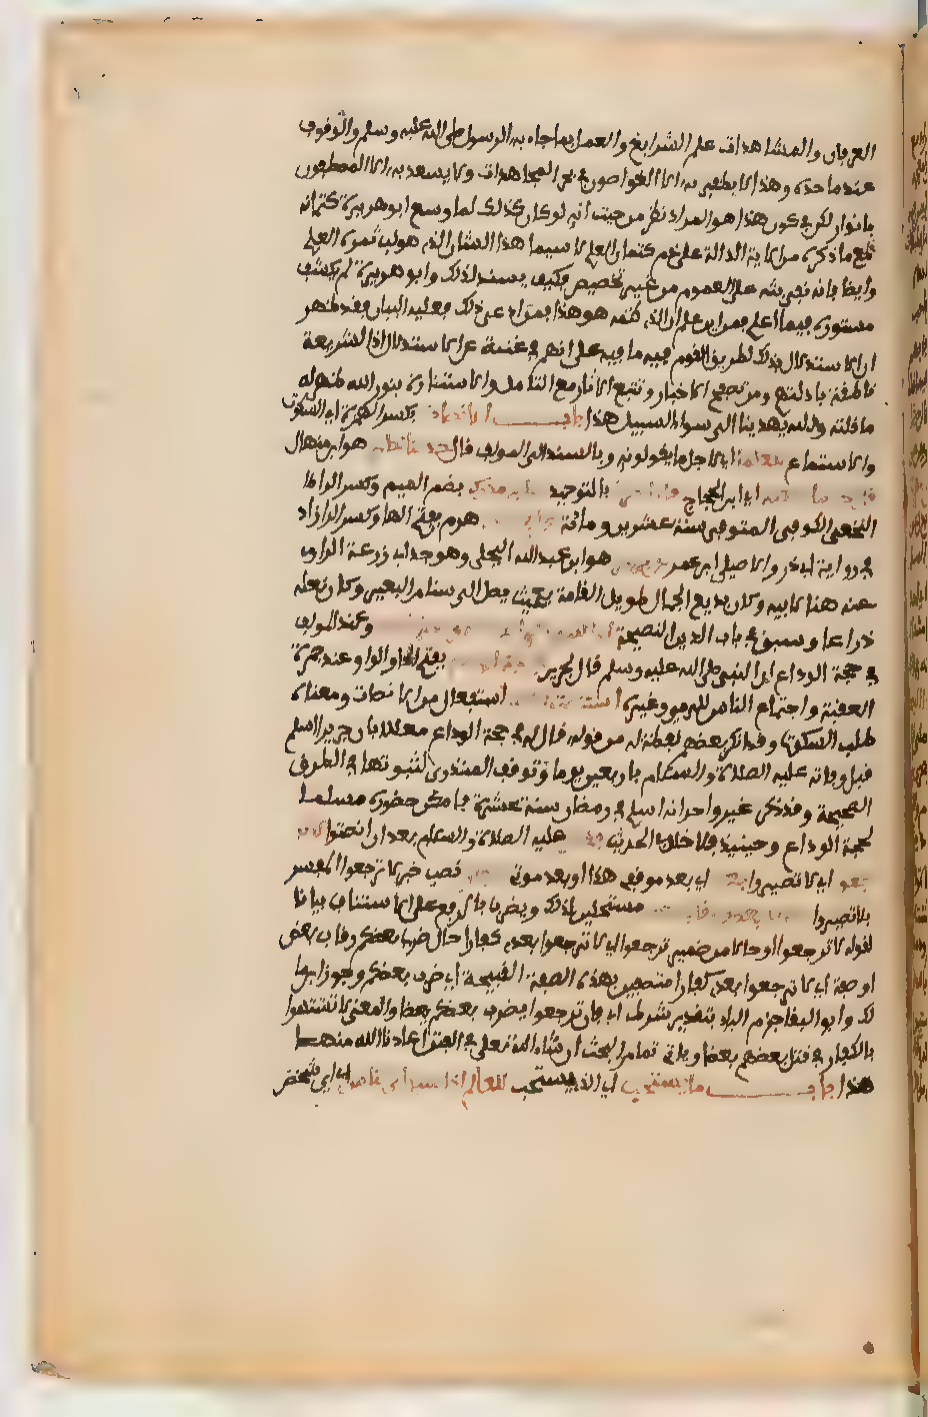 العرفان والمشاهدات علم الشرايع والعمل بما جاء به الرسول صلى الله عليه وسلم والوقوف
عند ما حده وهذا لا يظفر به الا الغواصون في بحر المجاهدات ولا يسعد به الا المصطفون
بانوار لكن في كون هذا هو المراد نظر من حيث انه لو كان كذلك لما وسع ابو هريرة كتمانه
مع ما ذكره من الاية الدالة على ذم كتمان العلم لا سيما هذا الشان الذي هو لب ثمرة العلم
وايضا فانه نفى بثه على العموم من غير تخصيص فكيف يستدل لذلك وابو هريرة لم يكشف
مستوره فيما اعلم فمن اين علم ان الذي كتمه هو هذا فمن ادعى ذلك فعليه البيان فقد ظهر
ان الاستدلال بذلك لطريق القوم فيه ما فيه على انهم في غنية عن الاستدلال اذ الشريعة
ناطقة بادلتهم ومن تصفح الاخبار وتتبع الاثار مع التامل والاستنارة بنور الله ظهر له
ما قلته والله يهدينا الى سواء السبيل هذا باب الانصات بكسر الهمزة اي السكوت
والاستماع للعلماء اي لاجل ما يقولونه وبالسند الى المولف قال حدثنا هو ابن منهال
اي ابن الحجاج بالتوحيد بضم الميم وكسر الراء
النخعي الكوفي المتوفى سنة عشرين ومائة هرم بفتح الها وكسر الرا زاد
في رواية ابي ذر والاصيلي ابن عمر هو ابو عبد الله البجلي وهو جد ابي زرعة الراوي
عنه هنا لابيه وكان بديع الجمال طويل القامة بحيث يصل الى سنام البعير وكان نعله
ذراعا وسبق في باب الدين النصيحة وعند المولف
في حجة الوداع ان النبي صلى الله عليه وسلم قال لجرير بفتح الحا والواو عند جمرة
العقبة واجتماع الناس للرمي وغيره استنصت استفعال من الانصات ومعناه
طلب السكوت وقد انكر بعضهم لفظة له من قوله قال له في حجة الوداع معللا بان جريرا اسلم
قبل وفاته عليه الصلاة والسلام باربعين يوما وتوقف المنذري لثبوتها في الطرق
الصحيحة وقد ذكر غير واحد انه اسلم في رمضان سنة عشرة فامكن حضوره مسلما
لحجة الوداع وحينيذ فلا خلل في الحديث عليه الصلاة والسلام بعد ان انصتوا
اي لا تصيروا اي بعد موقفي هذا او بعد موتي نصب خبر لا ترجعوا المفسر
بلا تصيروا مستحلين لذلك ويضرب بالرفع على الاستئناف بيانا
لقوله لا ترجعوا او حالا من ضمير ترجعوا اي لا ترجعوا بعدي كفارا حال ضرب بعضكم رقاب بعض
او صفة اي لا ترجعوا بعدي كفارا متصفين بهذه الصفة القبيحة اي ضرب بعضكم وجوز ابن ما
لك وابو البقا جزم الباء بتقدير شرط اي فان ترجعوا يضرب بعضكم بعضا والمعنى لا تتشبهوا
بالكفار في قتل بعضهم بعضا وياتي تمام البحث ان شاء الله تعلى في الفتن اعاذنا الله منها
هذا باب ما يستحب اي الذي يستحب للعالم اذا سئل اي الناس اي اي شخص